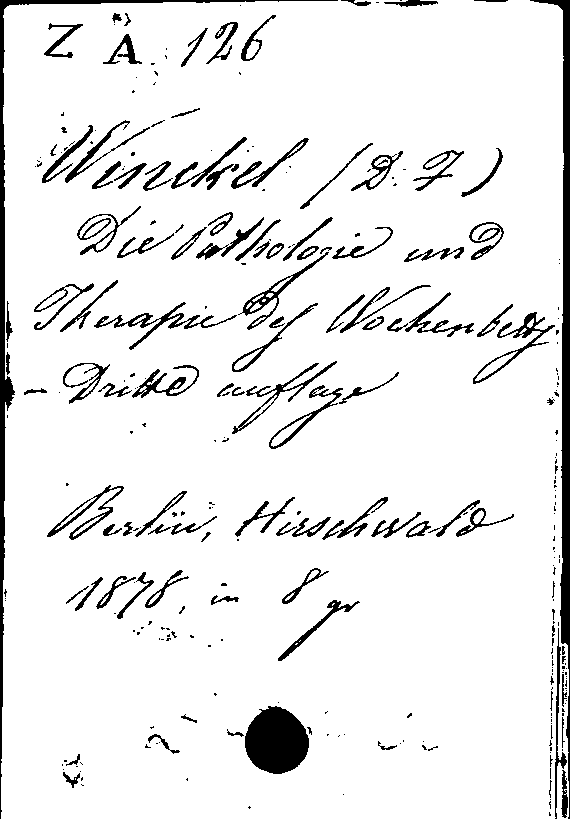 Z A 126
Winckel (D. F)
Die Pathologie und
Therapie des Wochenbetts.
- Dritte auflage
Berlin, Hirschwald
1878, in 8 gr